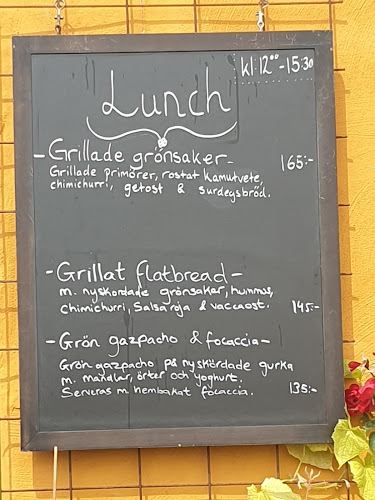 kl 12⁰⁰-15:30
Lunch
-Grillade grönsaker- 165:-
Grillade primörer, rostat kamutvete,
chimichurri, getost & surdegsbröd.
-Grillat flatbread-
m. nyskördade grönsaker, hummus,
chimichurri, Salsa roja & vaccaost. 145:-
-Grön gazpacho & focaccia-
Grön gazpacho på nyskördade gurka
m. mandlar, örter och yoghurt. 135:-
Serveras m hembakat focaccia.